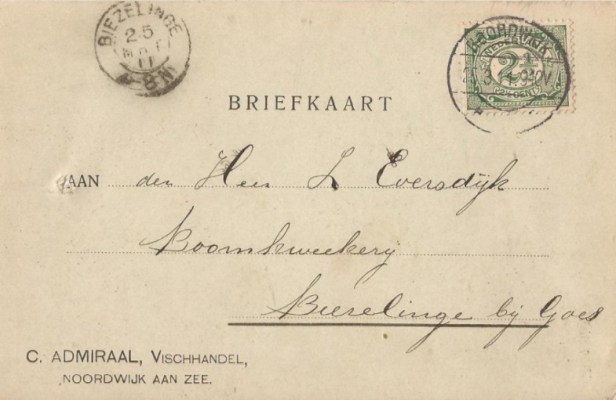 BIEZELINGE
25
11
8 M
NOORDWIJK
NEDERLAND
2½
BRIEFKAART
AAN den Heer L Eversdijk
Boomkweekerij
Bieselinge bij Goes
C. ADMIRAAL, VISCHHANDEL,
NOORDWIJK AAN ZEE.